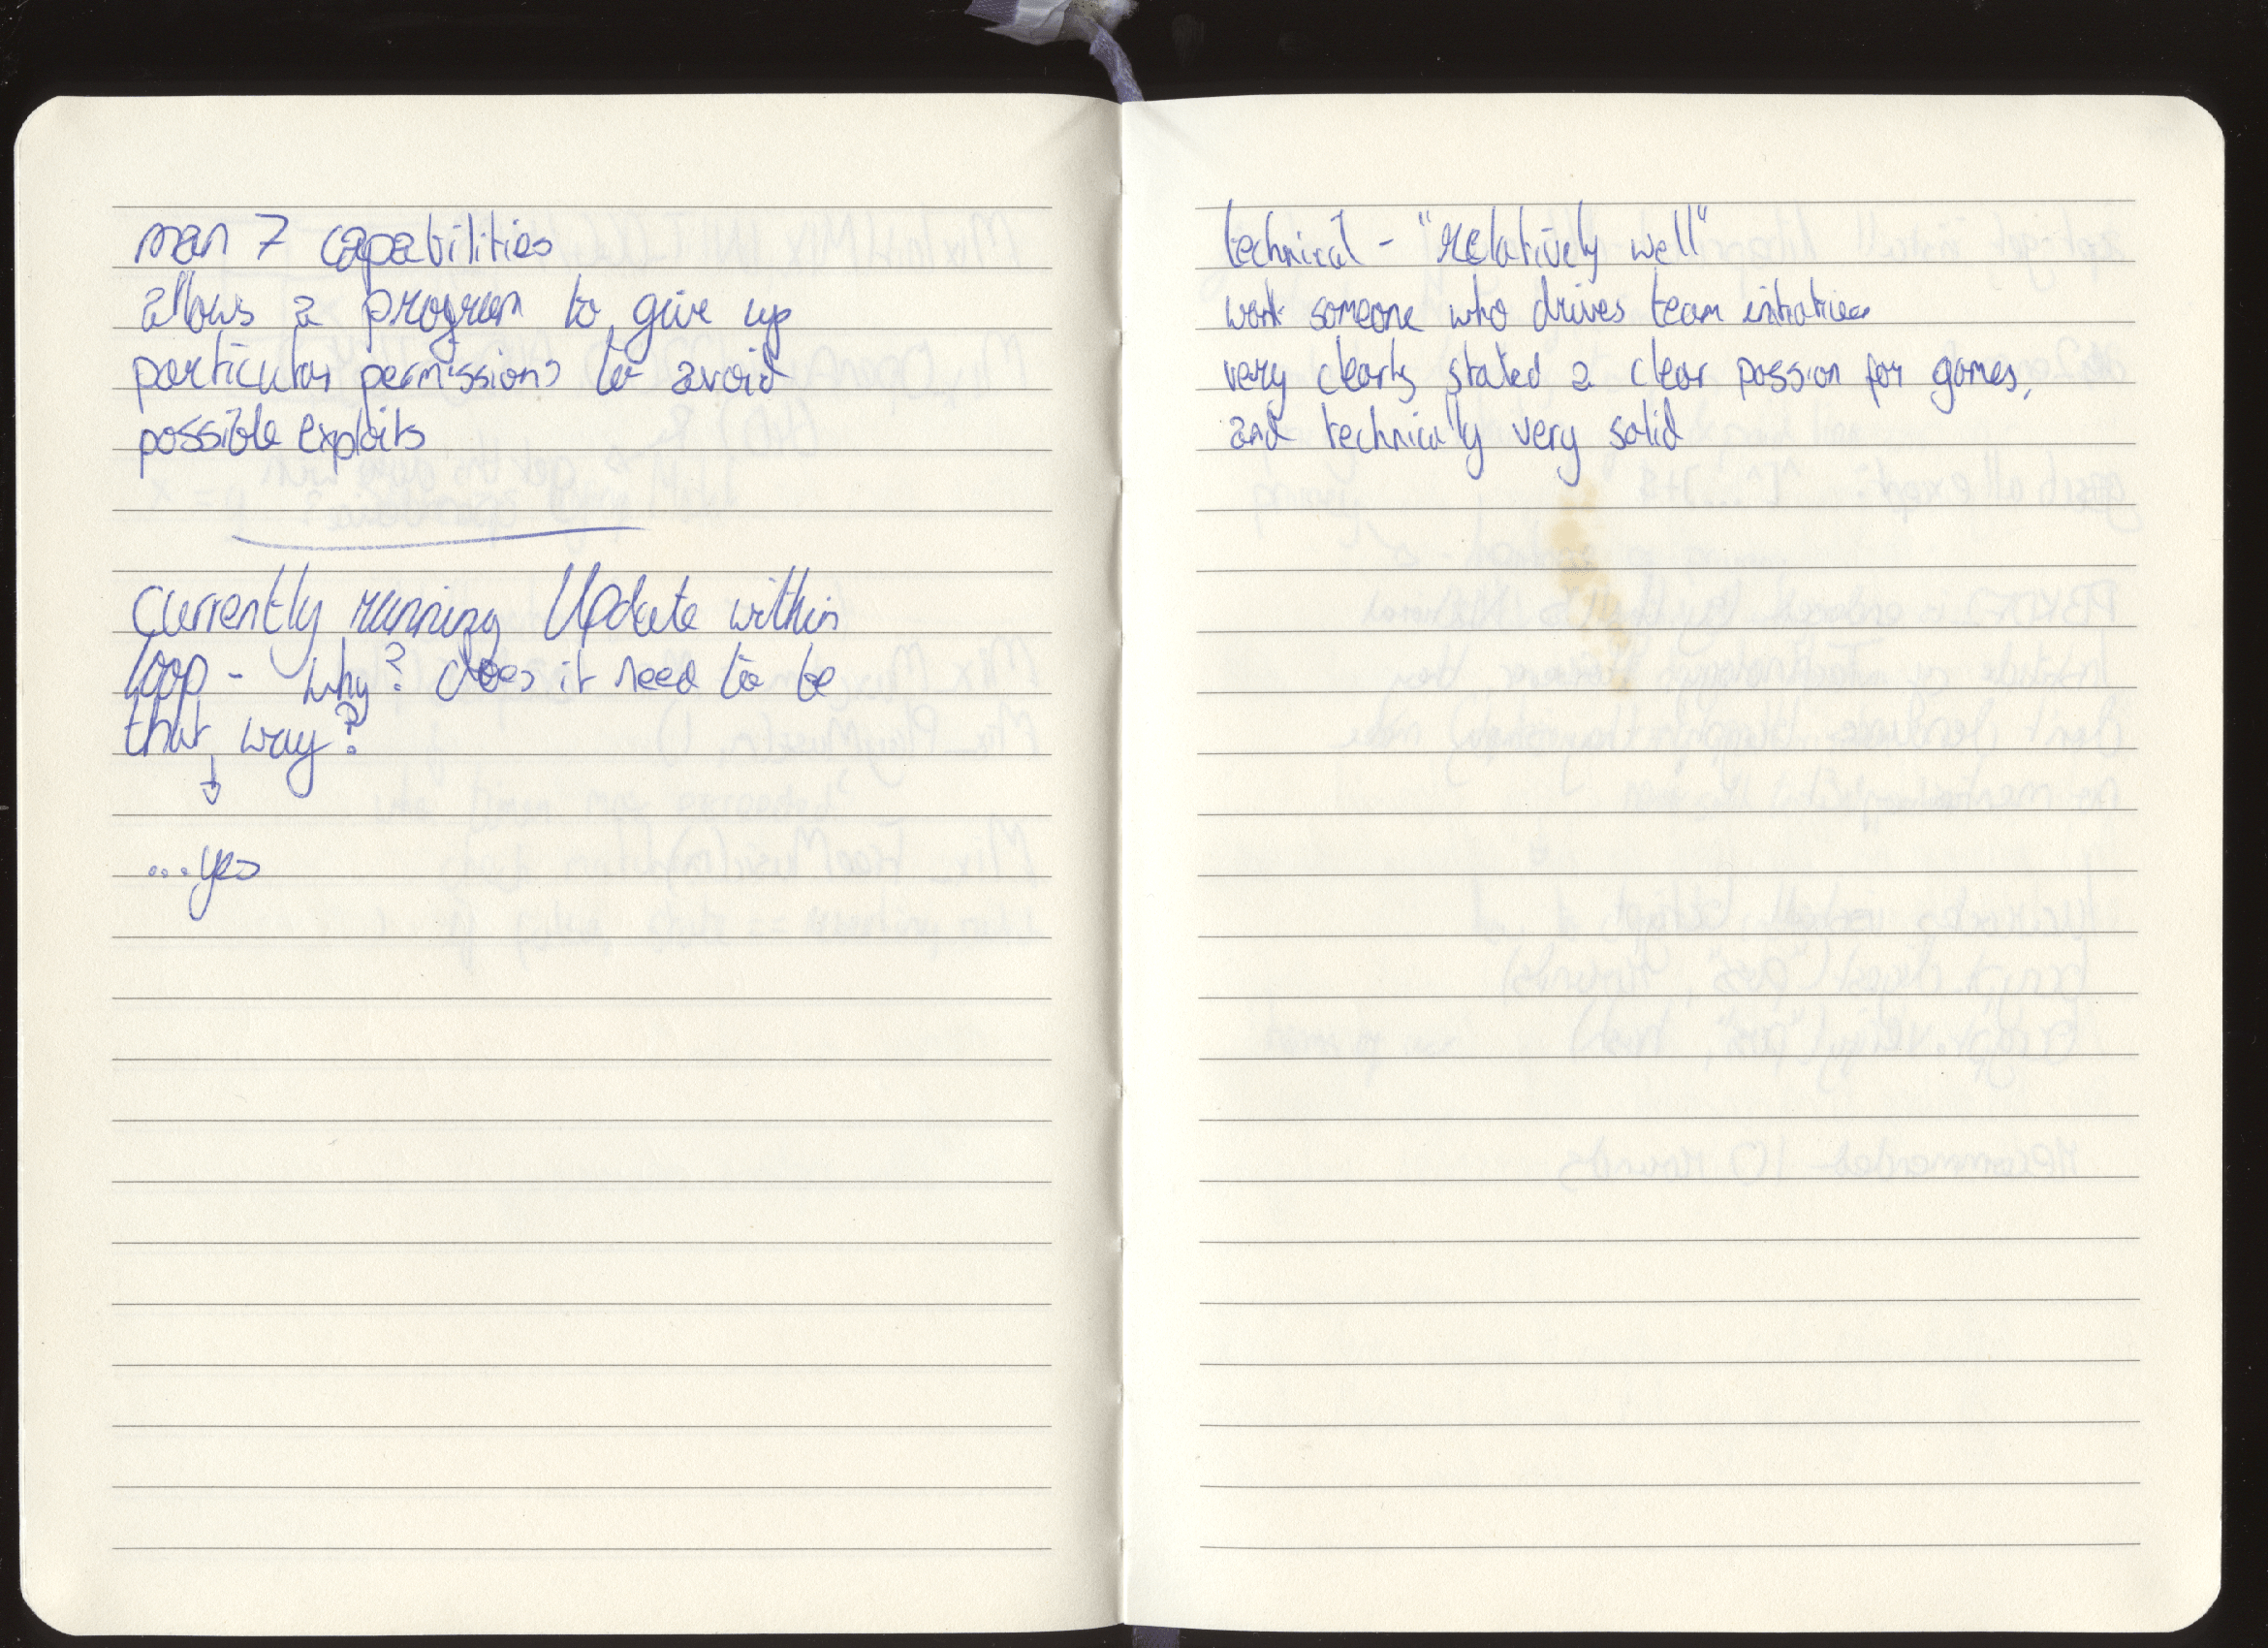 man 7 capabilities
allows a program to give up
particular permissions to avoid
possible exploits
currently running Update within
loop - why? does it need to be
that way?
...yes
technical - "relatively well"
work someone who drives team initiatives
very clearly stated a clear passion for games,
and technically very solid